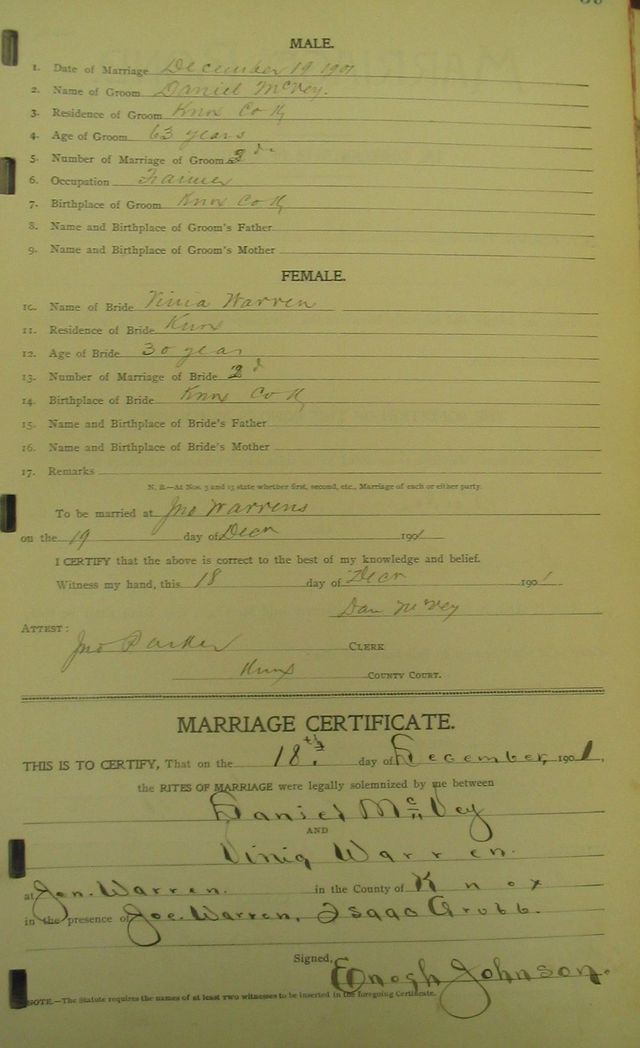 MALE.
1. Date of Marriage December 19 1901
2. Name of Groom Daniel McVey.
3. Residence of Groom Knox Co Ky
4. Age of Groom 63 years
5. Number of Marriage of Groom
6. Occupation Farmer
7. Birthplace of Groom Knox Co Ky
8. Name and Birthplace of Groom's Father
9. Name and Birthplace of Groom's Mother
FEMALE.
10. Name of Bride Vinia Warren
11. Residence of Bride Knox
12. Age of Bride 30 year
13. Number of Marriage of Bride 2d
14. Birthplace of Bride Knox Co Ky
15. Name and Birthplace of Bride's Father
16. Name and Birthplace of Bride's Mother
17. Remarks
N. B.—At Nos. 5 and 13 state whether first, second, etc., Marriage of each or either party.
To be married at Jno Warrens
on the 19 day of Decr 1901
I CERTIFY that the above is correct to the best of my knowledge and belief.
Witness my hand, this 18 day of Decr 1901
Dan McVey
ATTEST:
Jno Parker CLERK
Knox COUNTY COURT.
MARRIAGE CERTIFICATE.
THIS IS TO CERTIFY, That on the 18th. day of December, 1901.
the RITES OF MARRIAGE were legally solemnized by me between
Daniel McVey
AND
Vinia Warren.
at Jon. Warren. in the County of Knox
in the presence of Joe. Warren, Isaac Grubb.
Signed, Enogh Johnson.
NOTE.—The Statute requires the names of at least two witnesses to be inserted in the foregoing Certificate.